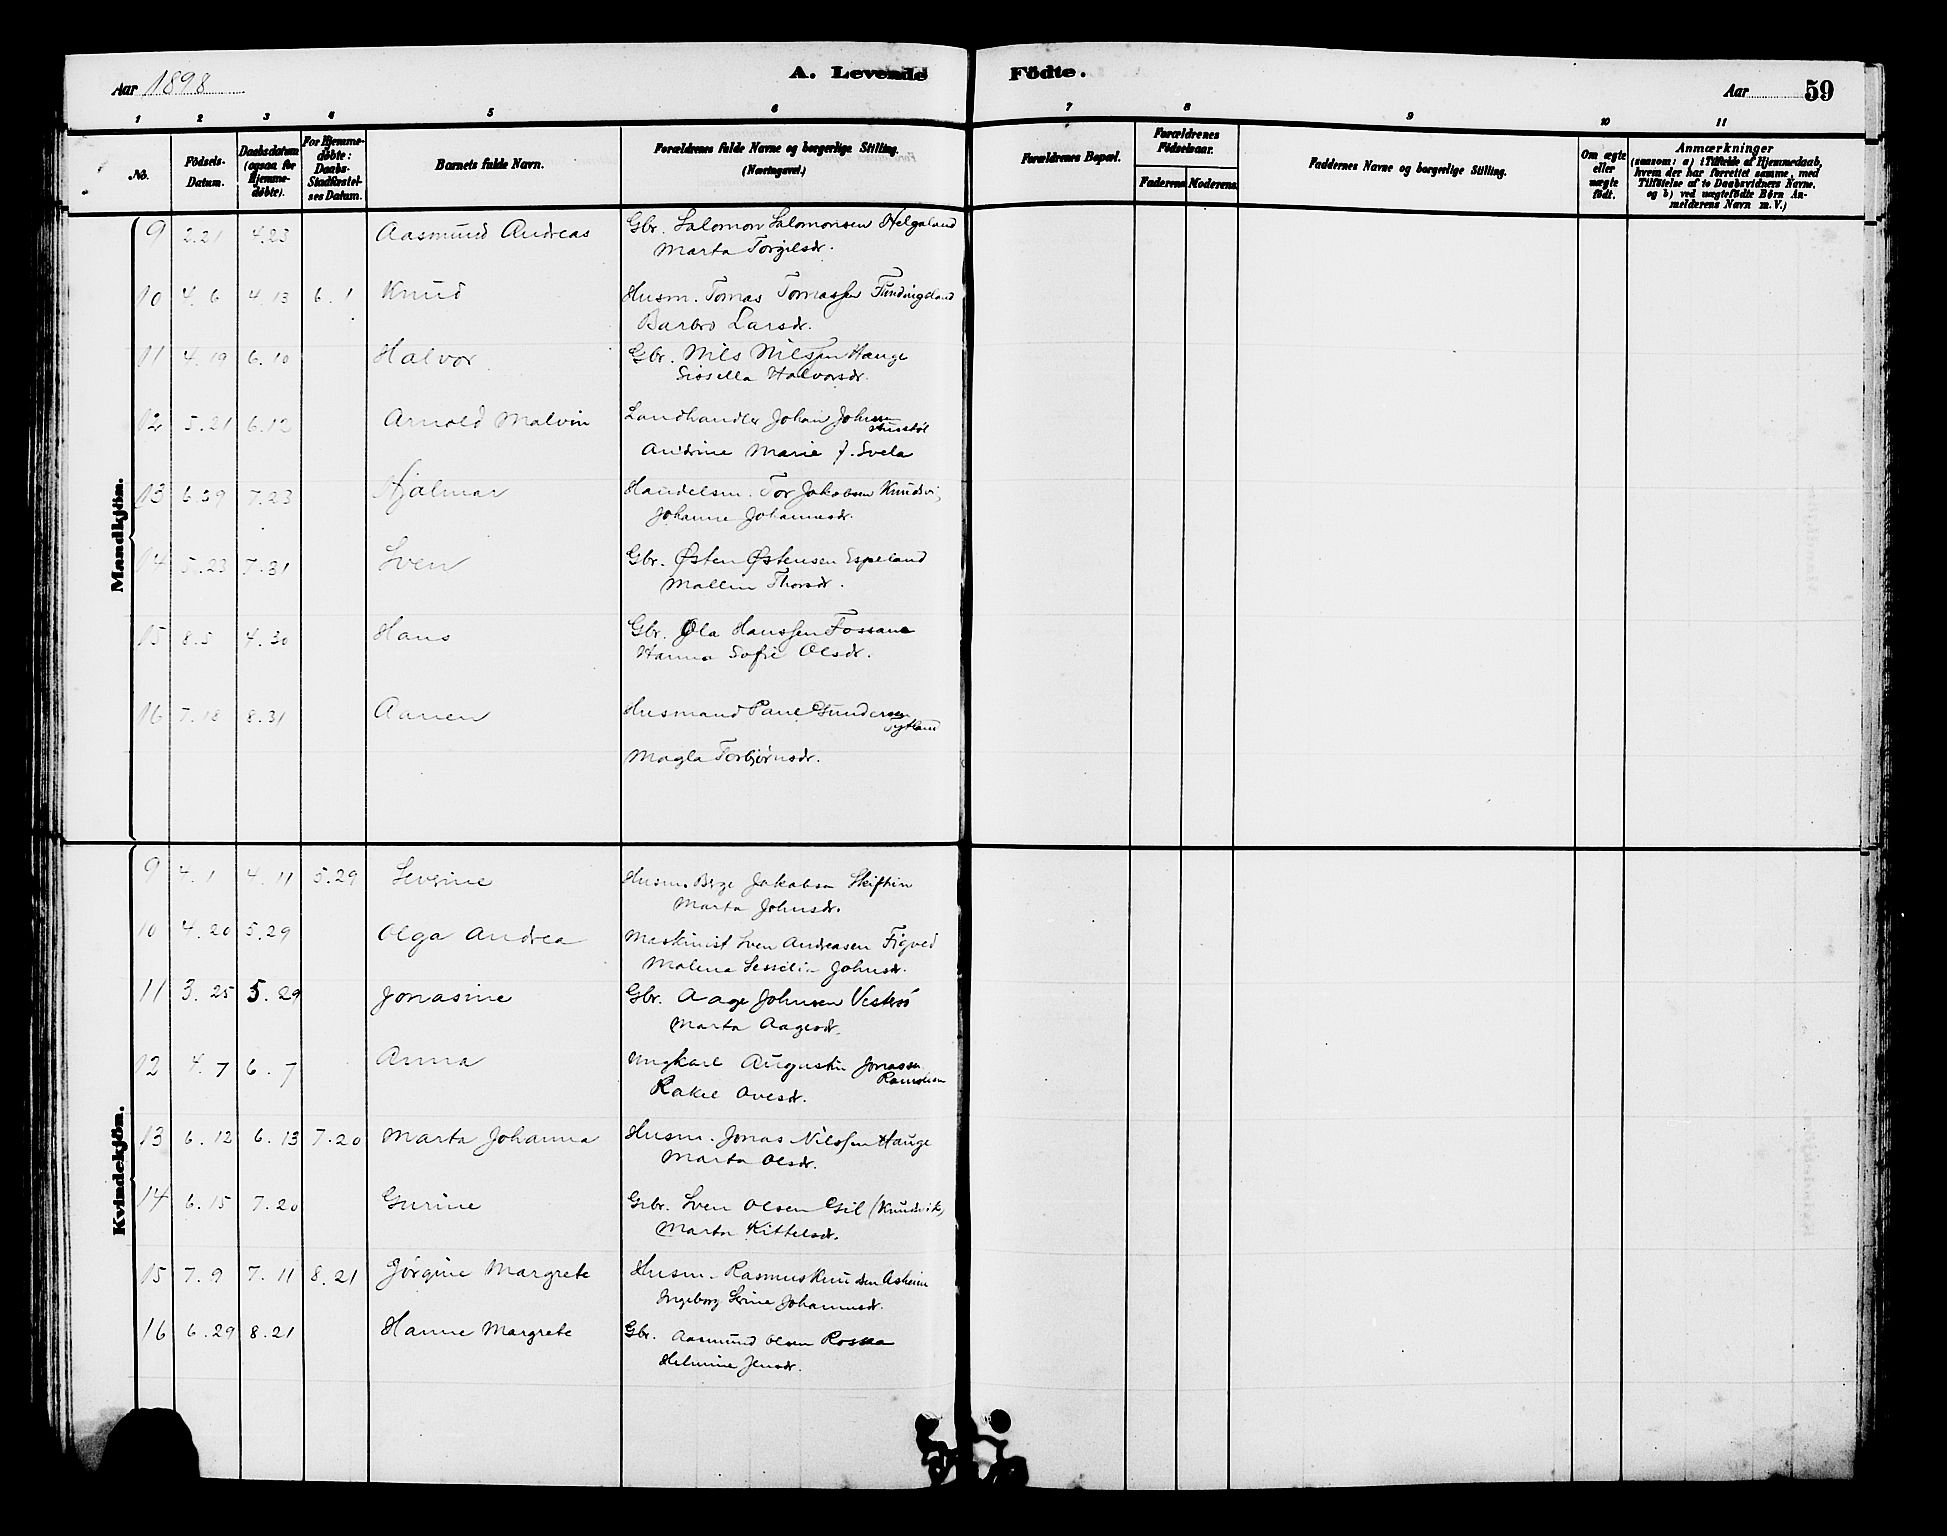 Aar 1898
A. Levende Födte.
Aar 59
1 2 3 4 5 6 7 8 9 10 11
No.
Födsels-Datum.
Daabsdatum (ogsaa for Hjemmedöbte).
For Hjemmedöbte: Daabs-Stadfæstelses Datum.
Barnets fulde Navn.
Forældrenes fulde Navne og borgerlige Stilling. (Næringsvei.)
Forældrenes Bopæl.
Forældrenes Födselsaar.
Faderens Moderens
Faddernes Navne og borgerlige Stilling.
Om ægte eller uægte født.
Anmærkninger
(saasom: a) i Tilfælde af Hjemmedaab,
hvem der har forrettet samme, med
Tilføielse af to Daabsvidners Navne,
og b) ved uægtefödte Börn An-
melderens Navn m.V.)
Mandkjön.
9 2.21 4.23 Aasmund Andreas Gbr. Salomon Salomonsen Helgaland
Marta Torgilsdr.
10 4.6 4.13 6.1 Knud Husm. Tomas Tomassen
Barbro Larsdr.
11 4.19 6.10 Halvor Gbr. Nils Nilssen Hauge
Sissella Halvorsdr.
12 5.21 6.12 Arnold Malvin Landhandler Johan Johnsen
Andrine Marie f. Svela
13 6.29 7.23 Hjalmar Handelsm. Tor Jakobsen Knudsvi
Johanne Johannesdr.
14 5.23 7.31 Sven Gbr. Østen Østensen Espeland
Mallin Thorsdr.
15 8.5 4.30 Hans Gbr. Ola Hanssen Fossane
Hanna Sofie Olsdr.
16 7.18 8.31 Aanen Husmand Paul Gundersen
Tytland
Magla Torbjørnsdr.
Kvindekjön.
9 4.1 4.11 5.29 Severine Husm. Berge Jakobsen Skiftun
Marta Johnsdr.
10 4.20 5.29 Olga Andrea Maskinist Sven Andreasen Figved
Malena Johnsdr.
11 3.25 5.29 Jonasine Gbr. Aage Johnsen Vestersø
Marta Aagesdr.
12 4.7 6.7 Anna Ungkarl Augustin Jonassen
Rakel Ovesdr.
13 6.12 6.13 7.20 Marta Johanna Husm. Jonas Nilssen Hauge
Marta Olsdr.
14 6.15 7.20 Gurine Gbr. Sven Olsen Gil (Knudsvik)
Marta Kittelsdr.
15 7.9 7.11 8.21 Jørgine Margrete Husm. Rasmus Knudsen Asheim
Ingeborg Serine Johannesdr.
16 6.29 8.21 Hanne Margrete Gbr. Aasmund Olsen Rossaa
Helmine Jensdr.